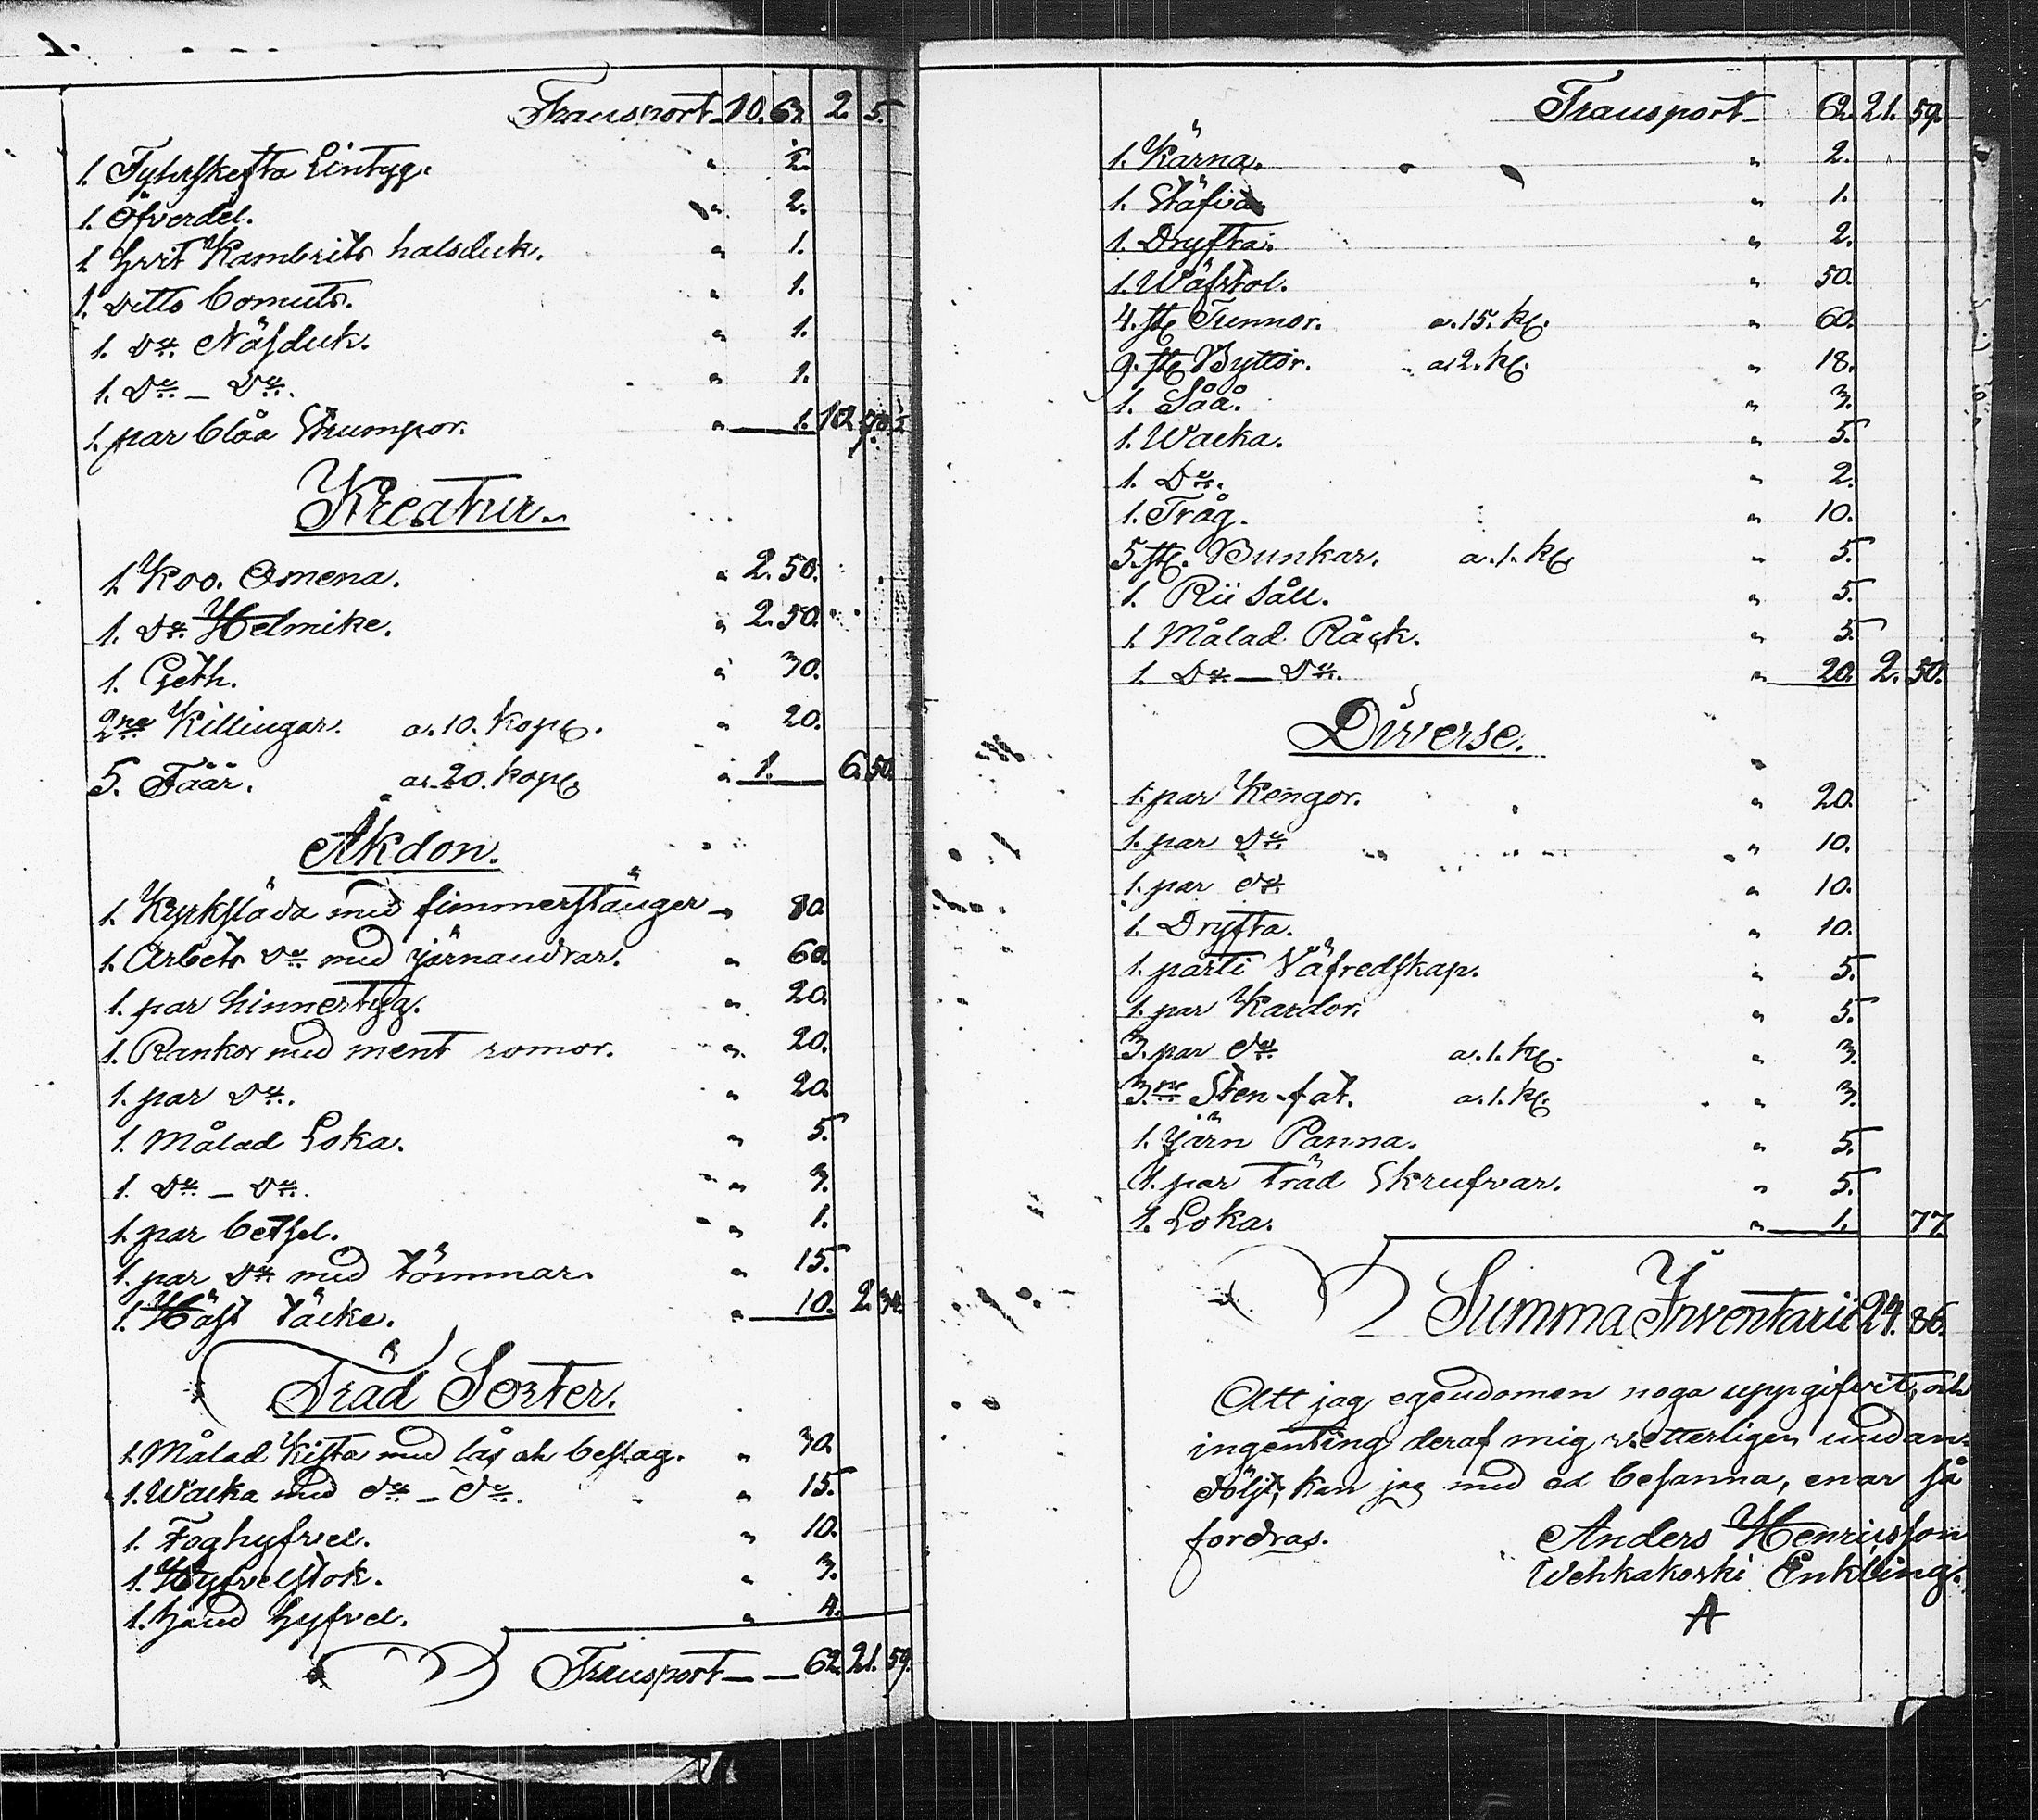 Transport 10. 63. 2. 5.
1. Fyhrskefta Lintyg. " 2.
1. Öfverdel. " 2.
1 hvit Kambrits halsduk. " 1.
1. Ditto Comuts. " 1.
1. Do. Näsduk. " 1.
1. Do. — Do. " 1.
1. par blåa Strumpor. " 1. 10.
Kreatur.
1. Koo. Omena. " 2. 50.
1. Do. Helmike. " 2. 50.
1. Geth. " 30.
2ne Killingar. a. 10. Kop. " 20.
5. Fåår. a. 20. kop. " 1. 6. 50.
Åkdon.
1. Kyrksläda med fimmerstänger " 80.
1. Arbets Do. med järnaudrar. " 60.
1. par hinnertyg. " 20.
1. Rankor med ment romor. " 20.
1. par Do. " 20.
1. Målad Loka. " 5.
1. Do. — Do. " 3.
1. par betsel. " 1.
1. par Do. med tömmar. " 15.
1. Häst täcke. " 10. 2. 34.
Träd Sorter.
1. Målad Kista med lås och beslag. " 30.
1. Wacka med do. — do. " 15.
1. Foghyfvel. " 10.
1. Hyfvelstok. " 3.
1. hand hyfvel. " 4.
Transport — — 62. 21. 59.
Transport — 62. 21. 59.
1. Kärna. " 2.
1. Stäfva " 1.
1. Dryfta. " 2.
1. Wäfstol. " 50.
4. st. Tunnor. a. 15. k. " 60.
9. st. Byttor. a. 2. k. " 18.
1. Såå. " 3.
1. Wacka. " 5.
1. Do. " 2.
1. Tråg. " 10.
5. st. Bunkar. a. 1. k. " 5.
1. Rii Såll. " 5.
1. Målad Råck. " 5.
1. Do. — Do. " 20. 2. 50.
Diverse.
1. par Kengor. " 20.
1. par Do. " 10.
1. par do. " 10.
1. Dryfta. " 10.
1. parti Väfredskap. " 5.
1. par Kardor. " 5.
3. par do. a. 1. k. " 3.
3ne Sten fat. a. 1. k. " 3.
1. Järn Panna. " 5.
1. par träd Skrufvar. " 5.
1. Loka. " 1. 77.
Summa Inventarii 24. 86.
Att jag egendomen noga uppgifvit, och
ingenting deraf mig vetterligen undan-
döljt, kan jag med ed besanna, enar så
fordras. Anders Henricsson
Wehkakoski Enkling.
A